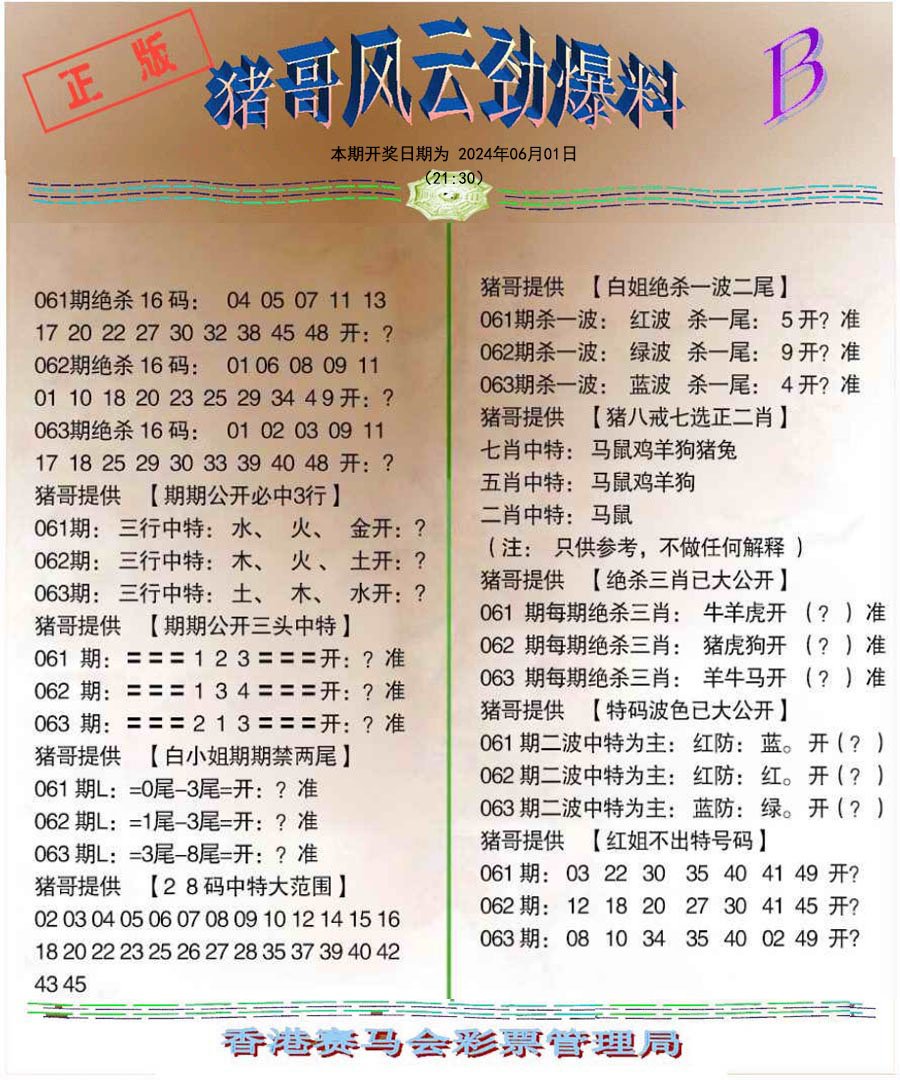 正版
猪哥风云劲爆料
B
本期开奖日期为 2024年06月01日
(21:30)
061期绝杀16码： 04 05 07 11 13
17 20 22 27 30 32 38 45 48 开：?
062期绝杀16码： 01 06 08 09 11
01 10 18 20 23 25 29 34 4 9 开：?
063期绝杀16码： 01 02 03 09 11
17 18 25 29 30 33 39 40 48 开：?
猪哥提供 【期期公开必中3行】
061期： 三行中特： 水、 火、 金开：?
062期： 三行中特： 木、 火、 土开：?
063期： 三行中特： 土、 木、 水开：?
猪哥提供 【期期公开三头中特】
061 期：〓〓〓1 2 3〓〓〓开：? 准
062 期：〓〓〓1 3 4〓〓〓开：? 准
063 期：〓〓〓2 1 3〓〓〓开：? 准
猪哥提供 【白小姐期期禁两尾】
061 期L：=0尾–3尾=开：? 准
062 期L：=1尾–3尾=开：? 准
063 期L：=3尾–8尾=开：? 准
猪哥提供 【2 8码中特大范围】
02 03 04 05 06 07 08 09 10 12 14 15 16
18 20 22 23 25 26 27 28 35 37 39 40 42
43 45
猪哥提供 【白姐绝杀一波二尾】
061期杀一波： 红波 杀一尾： 5开? 准
062期杀一波： 绿波 杀一尾： 9开? 准
063期杀一波： 蓝波 杀一尾： 4开? 准
猪哥提供 【猪八戒七选正二肖】
七肖中特： 马鼠鸡羊狗猪兔
五肖中特： 马鼠鸡羊狗
二肖中特： 马鼠
（注： 只供参考，不做任何解释 ）
猪哥提供 【绝杀三肖已大公开】
061 期每期绝杀三肖： 牛羊虎开 （? ）准
062 期每期绝杀三肖： 猪虎狗开 （? ）准
063 期每期绝杀三肖： 羊牛马开 （? ）准
猪哥提供 【特码波色已大公开】
061期二波中特为主： 红防： 蓝。开（? ）
062期二波中特为主： 红防： 红。开（? ）
063期二波中特为主： 蓝防： 绿。开（? ）
猪哥提供 【红姐不出特号码】
061期： 03 22 30 35 40 41 49 开?
062期： 12 18 20 27 30 41 45 开?
063期： 08 10 34 35 40 02 49 开?
香港赛马会彩票管理局